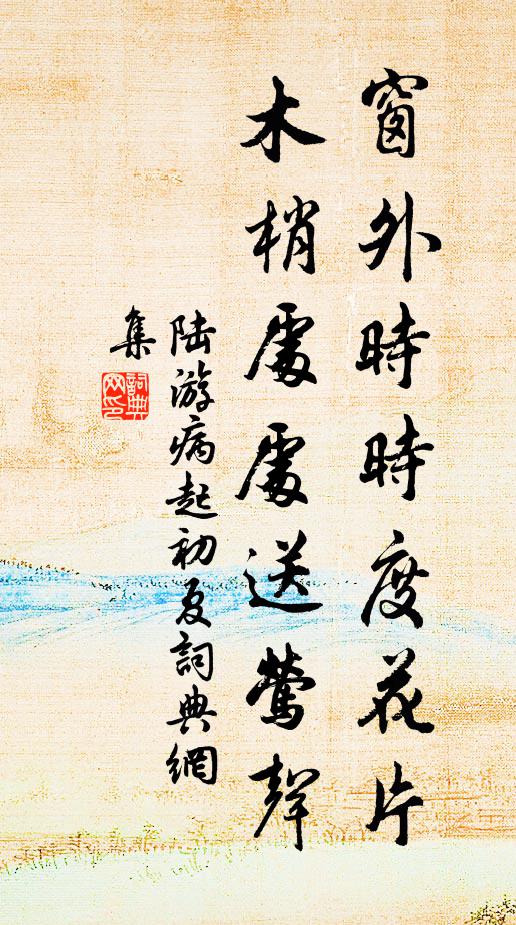 窗外時時度花片
木梢處處送鶯聲
陆游病起初夏詞典網
集
詞典
网印